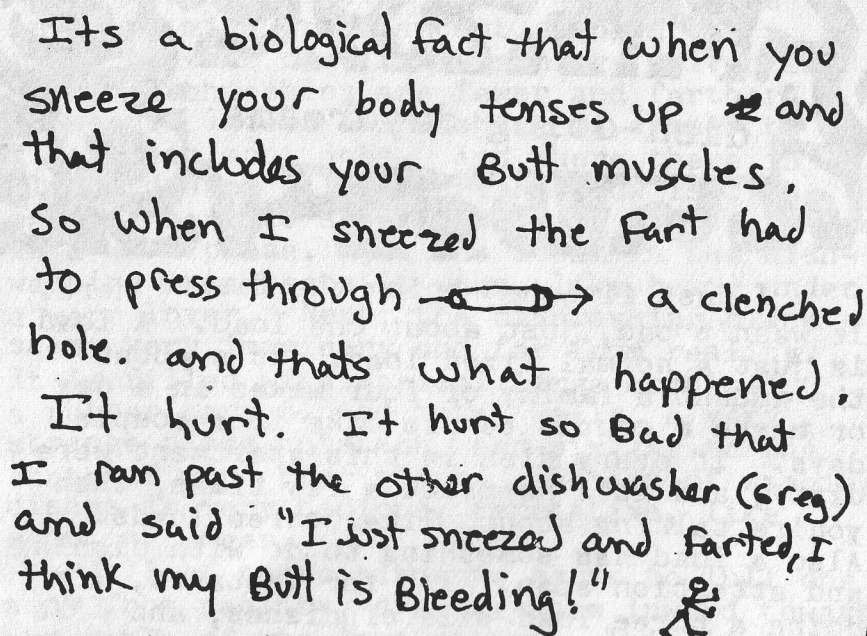 Its a biological fact that when you
sneeze your body tenses up and
that includes your Butt muscles.
so when I sneezed the Fart had
to press through a clenched
hole. and thats what happened.
It hurt. It hurt so Bad that
I ran past the other dishwasher (Greg)
and said "I just sneezed and farted, I
think my Butt is Bleeding!"